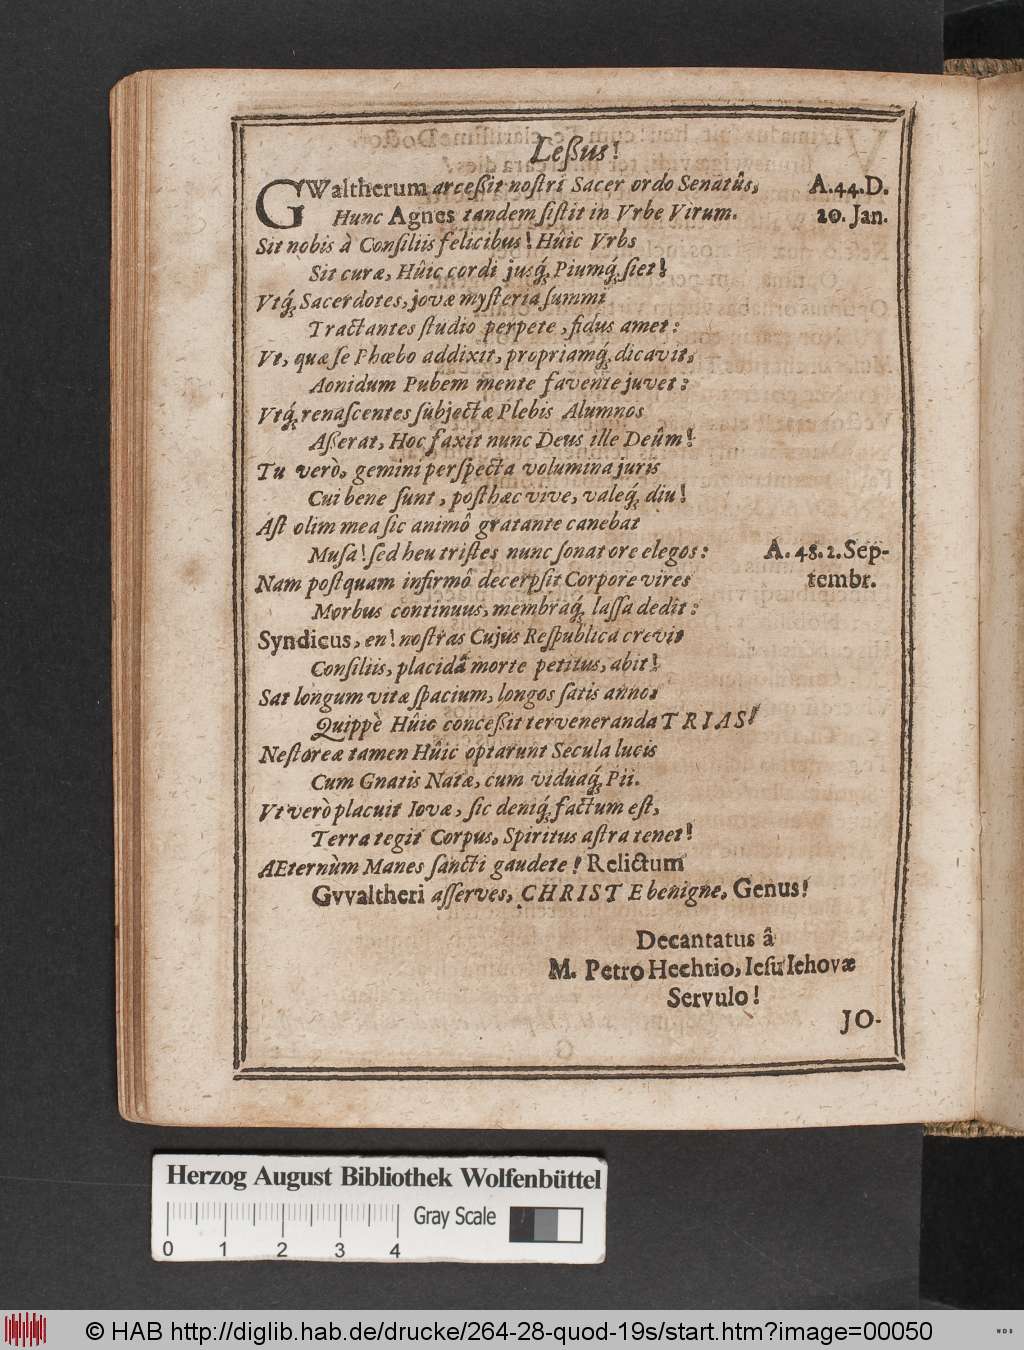 Leßus!
GWaltherum arceßit noſtri Sacer ordo Senatûs, A.44.D.
Hunc Agnes tandem ſiſtit in Vrbe Virum. 20. Jan.
Sit nobis à Conſiliis felicibus! Hûic Vrbs
Sit curæ, Hûic cordi jusq́; Piumq́; ſiet!
Vtq́; Sacerdotes, jovæ myſteria ſummi
Tractantes ſtudio perpete, fidus amet:
Vt, quæ ſe Phœbo addixit, propriamq́; dicavit,
Aonidum Pubem mente favente juvet:
Vtq́; renaſcentes ſubjectæ Plebis Alumnos
Aßerat, Hoc faxit nunc Deus ille Deûm!
Tu verò, gemini perſpecta volumina juris
Cui bene ſunt, poſthæc vive, valeq́; diu!
Aſt olim mea ſic animô gratante canebat
Muſa! ſed heu triſtes nunc ſonat ore elegos: A. 48. 2. Sep-
Nam poſtquam infirmô decerpſit Corpore vires tembr.
Morbus continuus, membraq́; laſſa dedit:
Syndicus, en! noſtras Cujus Reſpublica crevit
Conſiliis, placidâ morte petitus, abit!
Sat longum vitæ ſpacium, longos ſatis annos
Quippè Hûic conceßit terveneranda TRIAS!
Neſtoreæ tamen Hûic optarunt Secula lucis
Cum Gnatis Natæ, cum viduaq́; Pii.
Vt verò placuit Iovæ, ſic deniq́; factum eſt,
Terra tegit Corpus, Spiritus aſtra tenet!
AEternùm Manes ſancti gaudete! Relictum
Gvvaltheri aſſerves, CHRISTE benigne, Genus!
Decantatus â
M. Petro Hechtio, Ieſu Iehovæ
Servulo!
JO-
Herzog August Bibliothek Wolfenbüttel
Gray Scale
0 1 2 3 4
© HAB http://diglib.hab.de/drucke/264-28-quod-19s/start.htm?image=00050